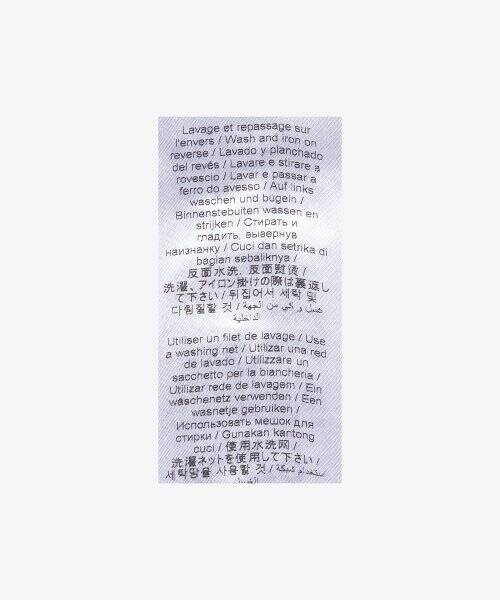 Lavage et repassage sur
l'envers / Wash and iron on
reverse / Lavado y planchado
del revés / Lavare e stirare a
rovescio / Lavar e passar a
ferro do avesso / Auf links
waschen und bügeln /
Binnenstebuiten wassen en
strijken / Стирать и
гладить, вывернув
наизнанку / Cuci dan setrika di
bagian sebaliknya /
反面水洗, 反面熨烫 /
洗濯、アイロン掛けの際は裏返し
て下さい / 뒤집어서 세탁 및
다림질할 것 / غسل و كي من الجهة
الداخلية
Utiliser un filet de lavage / Use
a washing net / Utilizar una red
de lavado / Utilizzare un
sacchetto per la biancheria /
Utilizar rede de lavagem / Ein
wäschenetz verwenden / Een
wasnetje gebruiken /
Использовать мешок для
стирки / Gunakan kantong
cuci / 使用水洗网 /
洗濯ネットを使用して下さい /
세탁망을 사용할 것 / استخدام شبكة